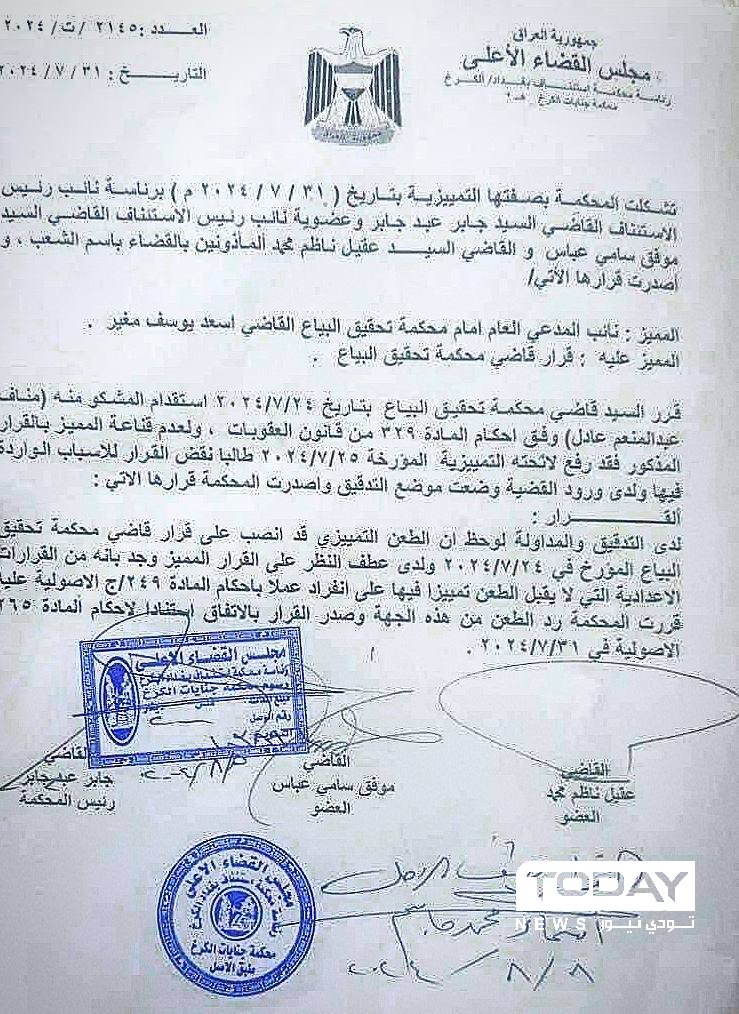 جمهورية العراق
مجلس القضاء الأعلى
رئاسة محكمة استئناف بغداد/ الكرخ
محكمة جنايات الكرخ
العدد : ٢١٤٥ /ت/ ٢٠٢٤
التاريخ : ٣١ / ٧ / ٢٠٢٤
تشكلت المحكمة بصفتها التمييزية بتاريخ ( ٣١ / ٧ / ٢٠٢٤ م ) برئاسة نائب رئيس
الاستئناف القاضي السيد جابر عبد جابر وعضوية نائب رئيس الاستئناف القاضي السيد
موفق سامي عباس و القاضي السيد عقيل ناظم محمد المأذونين بالقضاء باسم الشعب ، و
اصدرت قرارها الآتي/
المميز : نائب المدعي العام امام محكمة تحقيق البياع القاضي اسعد يوسف مغير .
المميز عليه : قرار قاضي محكمة تحقيق البياع .
قرر السيد قاضي محكمة تحقيق البياع بتاريخ ٢٠٢٤/٧/٢٤ استقدام المشكو منه (مناف
عبدالمنعم عادل) وفق احكام المادة ٣٢٩ من قانون العقوبات ، ولعدم قناعة المميز بالقرار
المذكور فقد رفع لائحته التمييزية المؤرخة ٢٠٢٤/٧/٢٥ طالبا نقض القرار للاسباب الواردة
فيها ولدى ورود القضية وضعت موضع التدقيق واصدرت المحكمة قرارها الاتي :
القـــــــرار :
لدى التدقيق والمداولة لوحظ ان الطعن التمييزي قد انصب على قرار قاضي محكمة تحقيق
البياع المؤرخ في ٢٠٢٤/٧/٢٤ ولدى عطف النظر على القرار المميز وجد بانه من القرارات
الاعدادية التي لا يقبل الطعن تمييزا فيها على انفراد عملا باحكام المادة ٢٤٩/ج الاصولية عليه
قررت المحكمة رد الطعن من هذه الجهة وصدر القرار بالاتفاق استنادا لاحكام المادة ٢٦٥
الاصولية في ٢٠٢٤/٧/٣١ .
مجلس القضاء الاعلى
محكمة جنايات الكرخ
رقم الوصل
القاضي
عقيل ناظم محمد
العضو
القاضي
موفق سامي عباس
العضو
القاضي
جابر عبد جابر
رئيس المحكمة
مجلس القضاء الاعلى
رئاسة محكمة استئناف بغداد الكرخ
محكمة جنايات الكرخ
طبق الاصل
٢٠٢٤/٨/٨
TODAY
NEWS تودي نيوز